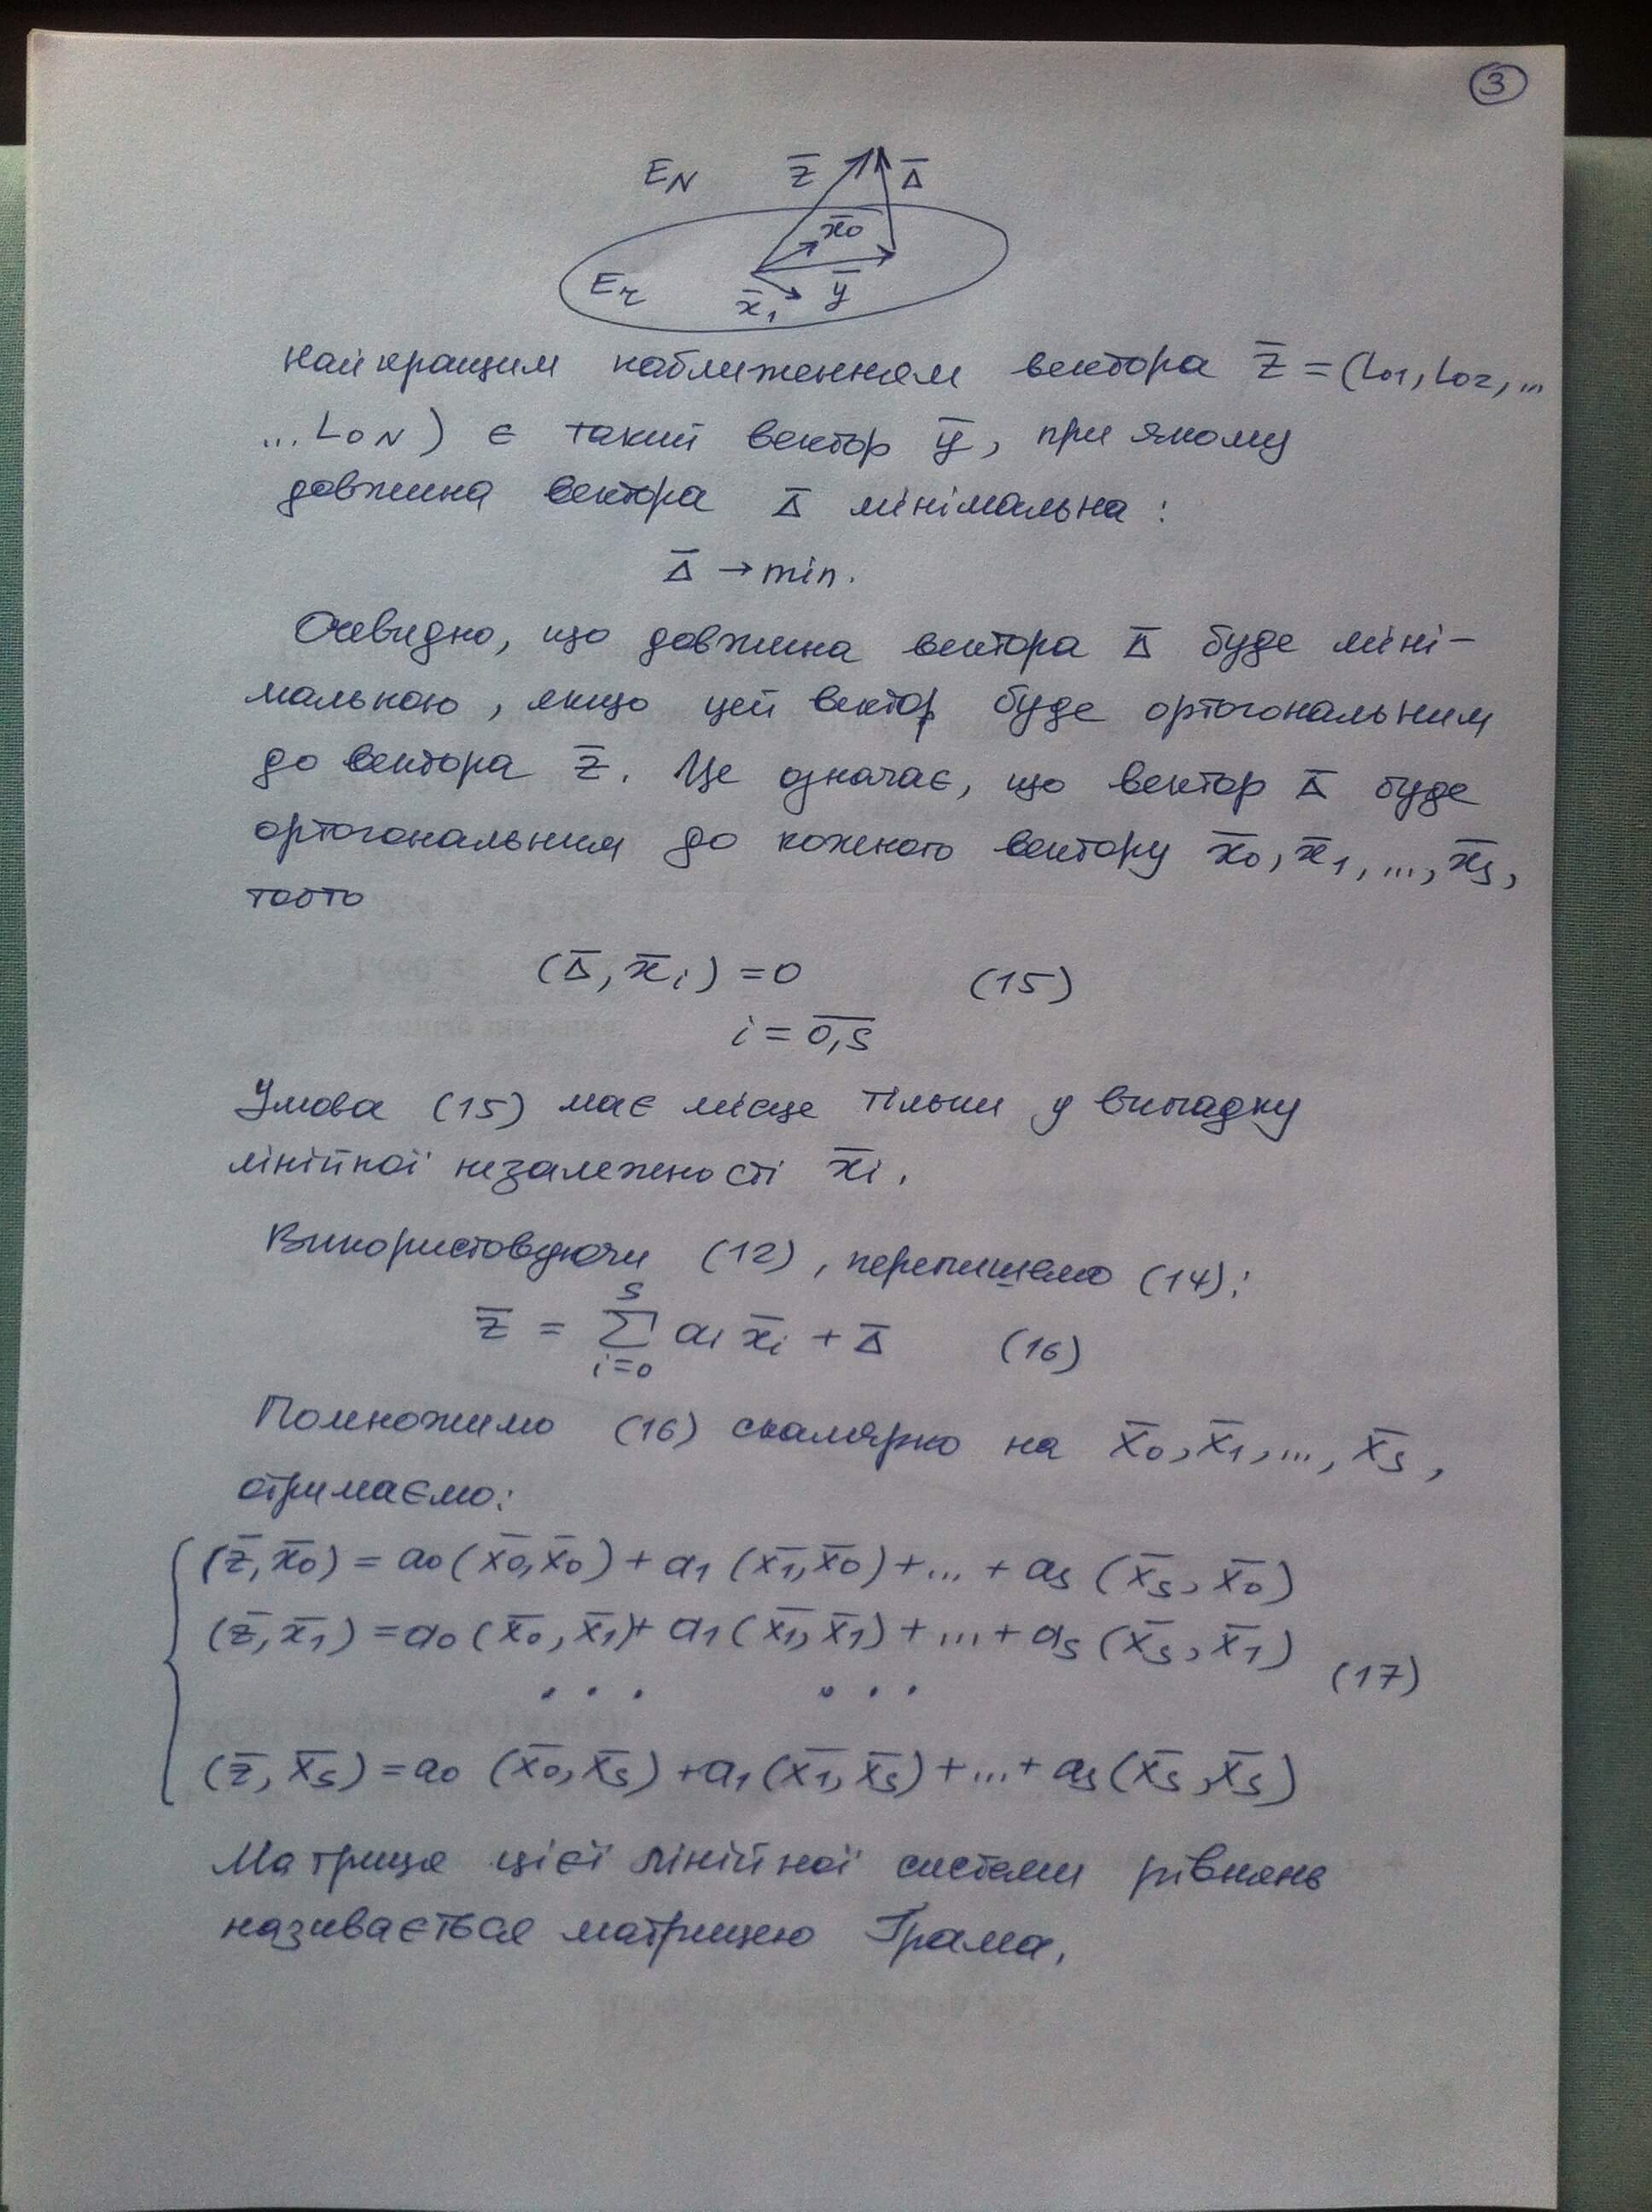 3
E_N z̄ Δ̄
x̄₀
E_r x̄₁ ȳ
найкращим наближенням вектора z̄ = (L₀₁, L₀₂, ...
... L₀N) є такий вектор ȳ, при якому
довжина вектора Δ̄ мінімальна :
Δ̄ → min.
Очевидно, що довжина вектора Δ̄ буде міні-
мальною, якщо цей вектор буде ортогональним
до вектора z̄. Це означає, що вектор Δ̄ буде
ортогональним до кожного вектору x̄₀, x̄₁, ..., x̄s,
тобто
(Δ̄, x̄i) = 0 (15)
i = 0,s
Умова (15) має місце тільки у випадку
лінійної незалежності x̄i.
Використовуючи (12), перепишемо (14):
z̄ = ∑_{i=0}^{s} ai x̄i + Δ̄ (16)
Помножимо (16) скалярно на x̄₀, x̄₁, ..., x̄s,
отримаємо:
(z̄, x̄₀) = a₀(x̄₀, x̄₀) + a₁(x̄₁, x̄₀) + ... + as(x̄s, x̄₀)
(z̄, x̄₁) = a₀(x̄₀, x̄₁) + a₁(x̄₁, x̄₁) + ... + as(x̄s, x̄₁)
(17)
. . . . . .
(z̄, x̄s) = a₀(x̄₀, x̄s) + a₁(x̄₁, x̄s) + ... + as(x̄s, x̄s)
Матриця цієї лінійної системи рівнянь
називається матрицею Грама.